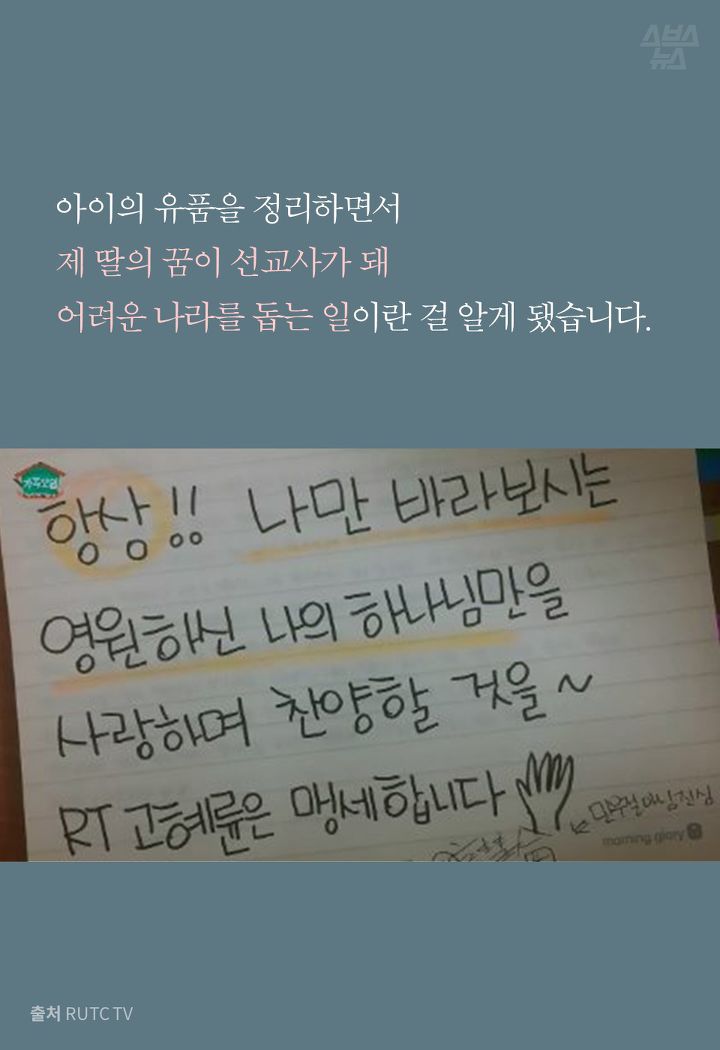 스브스
뉴스
아이의 유품을 정리하면서
제 딸의 꿈이 선교사가 돼
어려운 나라를 돕는 일이란 걸 알게 됐습니다.
항상!! 나만 바라보시는
영원하신 나의 하나님만을
사랑하며 찬양할 것을~
RT 고혜륜은 맹세합니다
morning glory
출처 RUTC TV